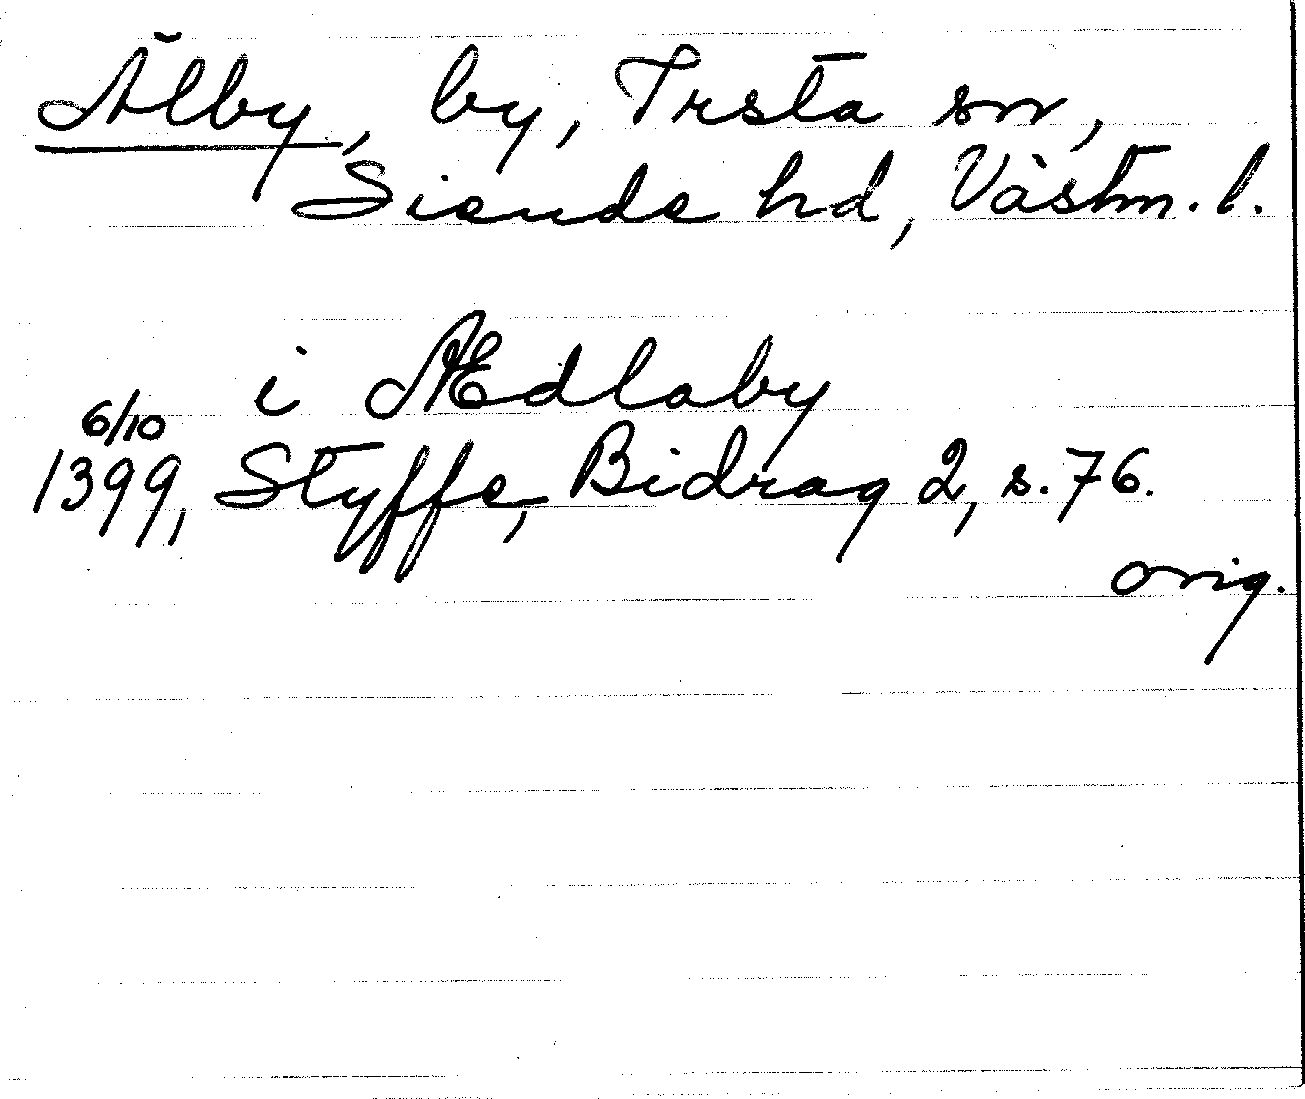 Älby, by, Irsta sn,
Siende hd, Västm. l.
i Ædlaby
6/10
1399, Styffe, Bidrag 2, s. 76.
orig.